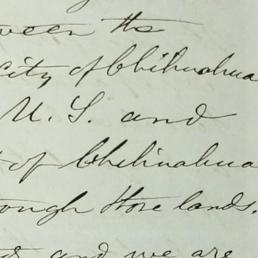 ween the
city of Chihuahua
U. S. and
of Chihuahua
ough those lands.
and we are